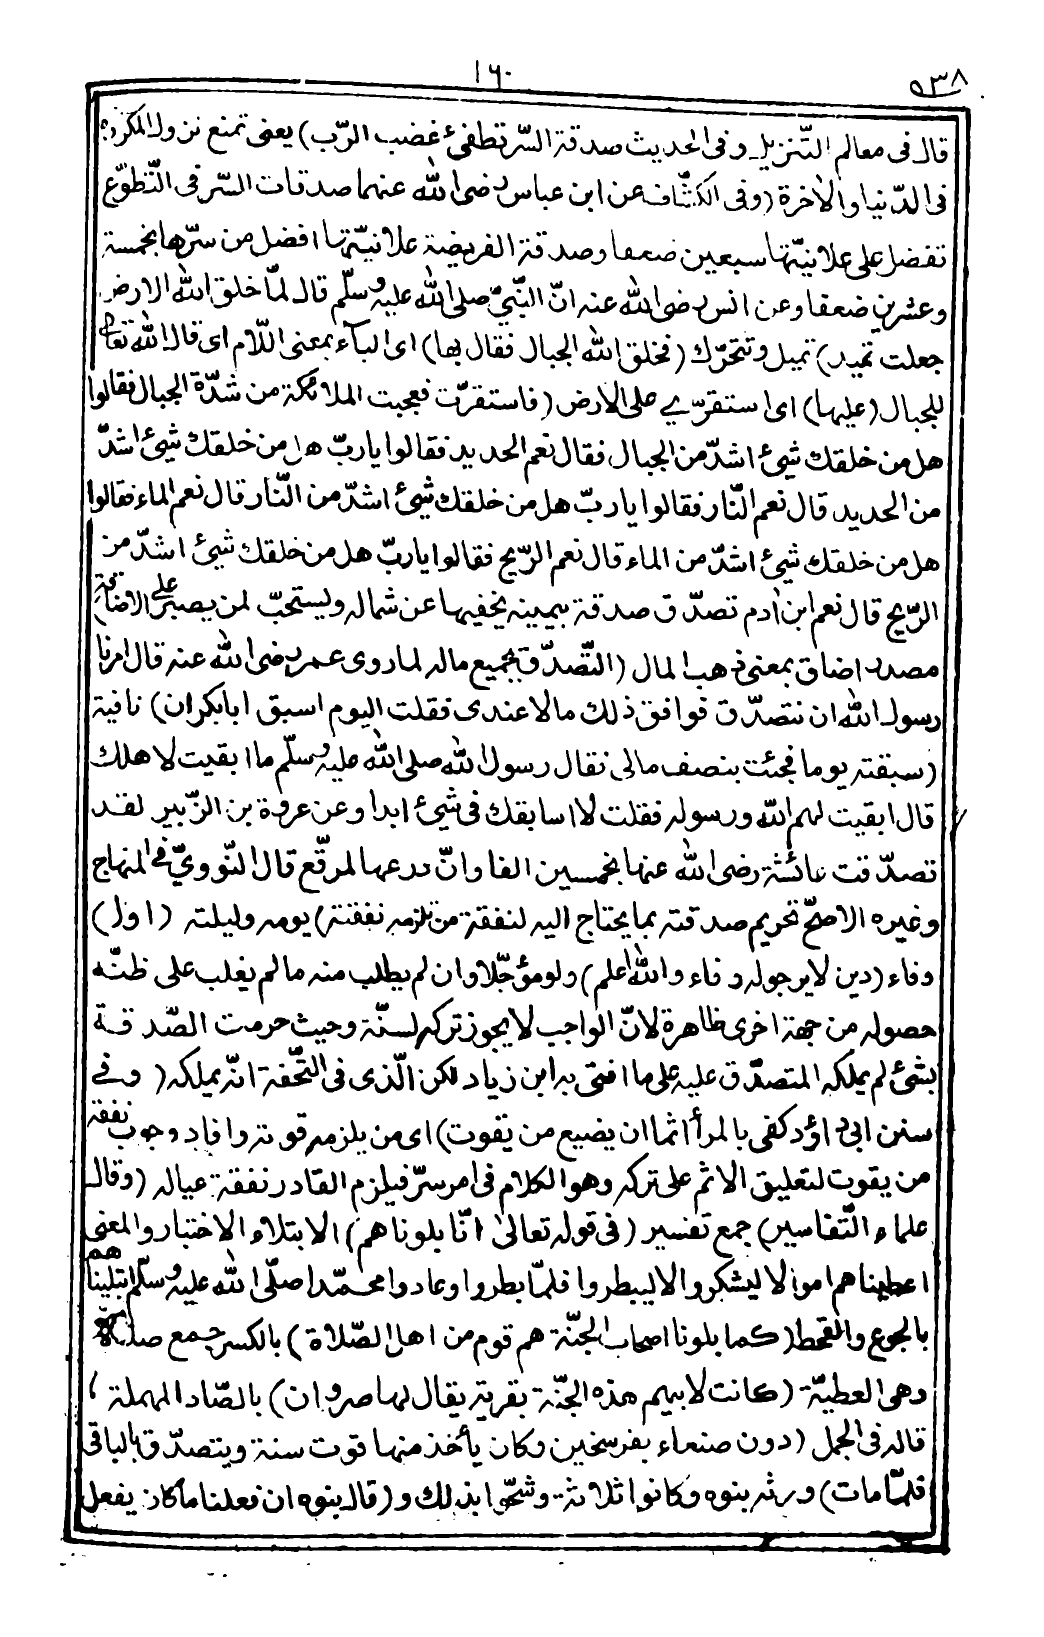 ١٦٠
٥٣٨
قال فى معالم التّنزيل وفى الحديث صدقة السّرّ تطفئ غضب الرّب) يعنى تمنع نزول المكروه
فى الدّنيا والآخرة (وفى الكشّاف عن ابن عباس رضى الله عنهما صدقات السّر فى التّطوّع
تفضل على علانيّتها سبعين ضعفا وصدقة الفريضة علانيّتها افضل من سرّها بخمسة
وعشرين ضعفا وعن انس رضى الله عنه انّ النّبيّ صلى الله عليه وسلّم قال لمّا خلق الله الارض
جعلت تميد) تميل وتتحرّك (فخلق الله الجبال فقال بها) اى الباء بمعنى اللّام اى قال الله تعالى
للجبال (عليها) اى استقرّى على الارض (فاستقرّت فعجبت الملائكة من شدّة الجبال فقالوا
هل من خلقك شيئ اشدّ من الجبال فقال نعم الحديد فقالوا يا ربّ هل من خلقك شيئ اشدّ
من الحديد قال نعم النّار فقالوا يا ربّ هل من خلقك شيئ اشدّ من النّار قال نعم الماء فقالوا
هل من خلقك شيئ اشدّ من الماء قال نعم الرّيح فقالوا يا ربّ هل من خلقك شيئ اشدّ من
الرّيح قال نعم ابن اٰدم تصدّق صدقة بيمينه يخفيها عن شماله ويستحبّ لمن يصبر على الاضاقة
مصدر اضاق بمعنى ذهب المال (التّصدّق بجميع ماله لما روى عمر رضى الله عنه قال امرنا
رسول الله ان نتصدّق فوافق ذلك مالا عندى فقلت اليوم اسبق ابا بكر ان) نافية
(سبقته يوما فجئت بنصف مالى فقال رسول الله صلى الله عليه وسلّم ما ابقيت لاهلك
قال ابقيت لهم الله ورسوله فقلت لا اسابقك فى شيئ ابدا وعن عروة بن الزّبير لقد
تصدّقت عائشة رضى الله عنها بخمسين الفا وانّ درعها لمرقّع قال النّوويّ فى المنهاج
وغيره الاصحّ تحريم صدقته بما يحتاج اليه لنفقة من تلزمه نفقته) يومه وليلته (اول)
وفاء (دين لا يرجو له وفاء والله اعلم) ولو مؤجّلا وان لم يطلب منه ما لم يغلب على ظنّه
حصوله من جهة اخرى ظاهرة لانّ الواجب لا يجوز تركه لسنّة وحيث حرمت الصّدقة
بشئ لم يملكه المتصدّق عليه على ما افتى به ابن زياد لكن الّذى فى التّحفة انّه يملكه (وفى
سنن ابى داؤد كفى بالمرأ اثما ان يضيع من يقوت) اى من يلزمه قوته وافاد وجوب نفقة
من يقوت لتعليق الاثم على تركه وهو الكلام فى امر سرّ فيلزم القادر نفقة عياله (وقال
علماء التّفاسير) جمع تفسير (فى قوله تعالىٰ انّا بلوناهم) الابتلاء الاختبار والمعنى
اعطيناهم اموالا ليشكروا لا ليبطروا فلمّا بطروا وعادوا محمّدا صلّى الله عليه وسلّم ابتليناهم
بالجوع والقحط (كما بلونا اصحاب الجنّة هم قوم من اهل الصّلاة) بالكسر جمع صلة
وهى العطيّة (كانت لابيهم هذه الجنّة بقرية يقال لها صروان) بالصّاد المهملة ،
قاله فى الجمل (دون صنعاء بفرسخين وكان يأخذ منها قوت سنة ويتصدّق بالباقى
فلمّا مات) ورثه بنوه وكانوا ثلاثة وشحّوا بذلك و(قال بنوه ان فعلنا ما كان يفعل